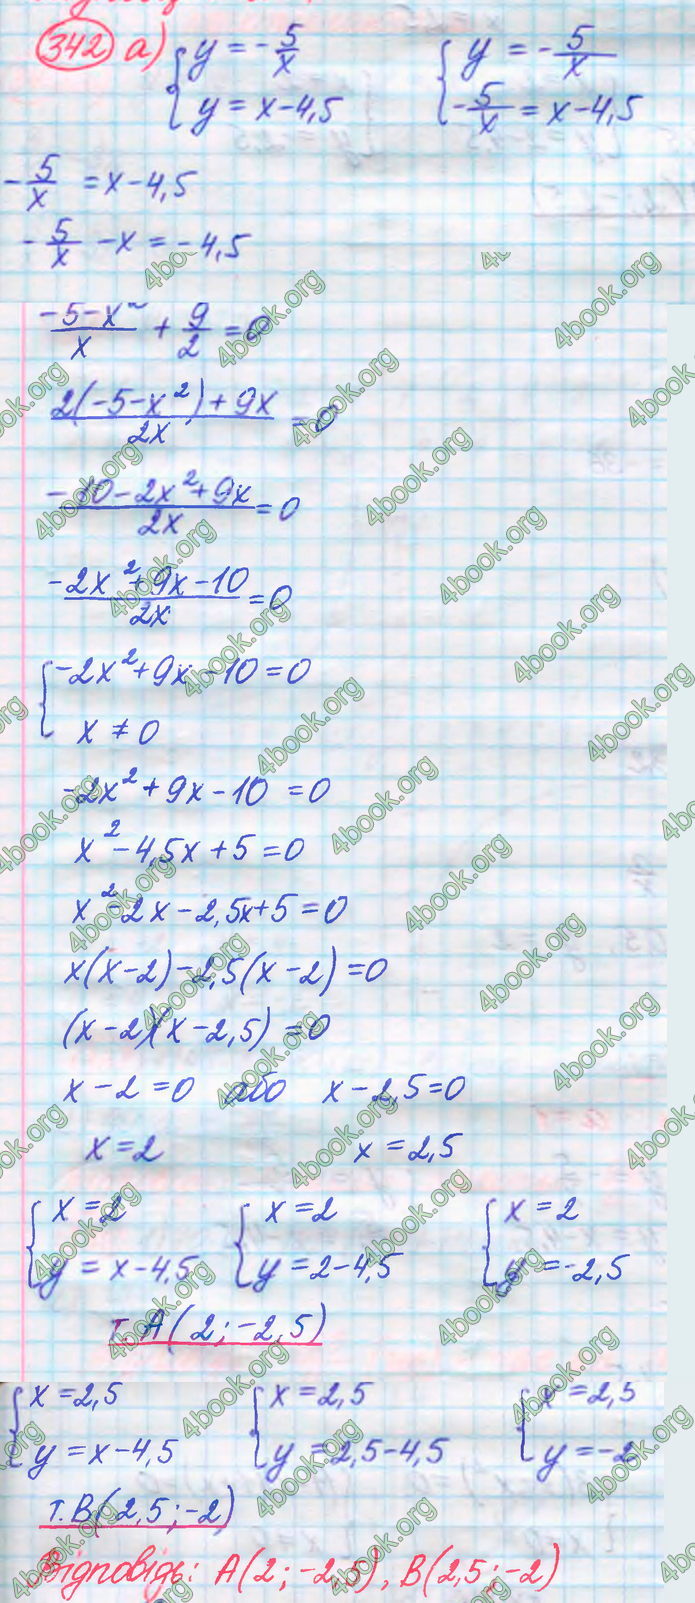 342 а) { y = -5/x      { y = -5/x
{ y = x-4,5      { -5/x = x-4,5
-5/x = x-4,5
-5/x -x = -4,5
(-5-x²)/x + 9/2 = 0
(2(-5-x²)+9x)/2x = 0
(-10-2x²+9x)/2x = 0
(-2x²+9x-10)/2x = 0
{ -2x²+9x-10=0
{ x ≠ 0
-2x²+9x-10 = 0
x²-4,5x+5=0
x²-2x-2,5x+5=0
x(x-2)-2,5(x-2)=0
(x-2)(x-2,5)=0
x-2=0 або x-2,5=0
x=2      x=2,5
{ x=2      { x=2      { x=2
{ y=x-4,5      { y=2-4,5      { y=-2,5
т. A(2; -2,5)
{ x=2,5      { x=2,5      { x=2,5
{ y=x-4,5      { y=2,5-4,5      { y=-2
т. B(2,5; -2)
Відповідь: A(2; -2,5), B(2,5; -2)
4book.org